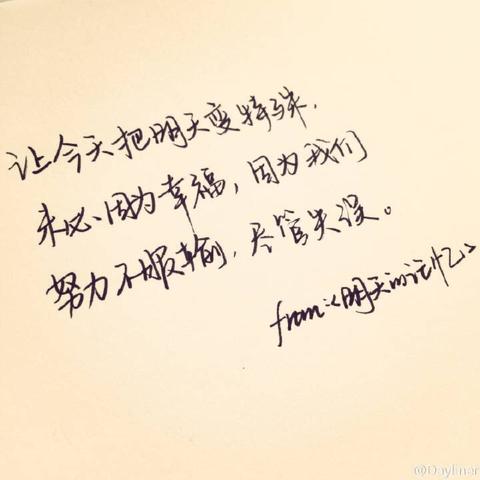 让今天把明天变特殊.
未必、因为幸福，因为我们
努力不服输，尽管失误。
from:《明天的记忆》
@Dayliner